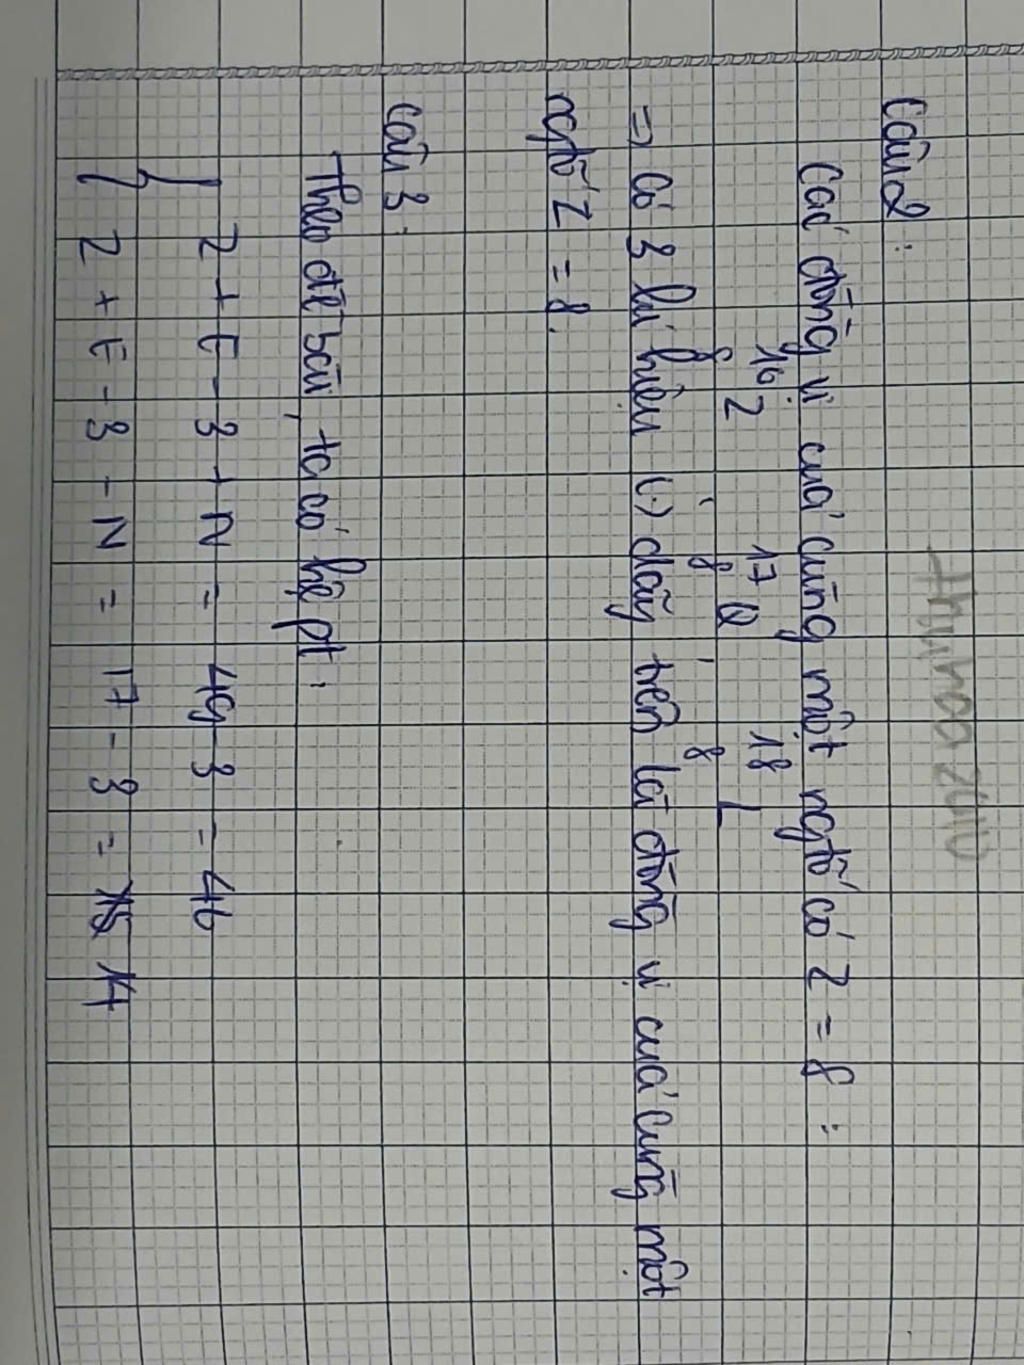 Huihoo2010
Câu 2:
Các đồng vị của cùng một ngtố có Z = 8:
16 8 Z, 17 8 Q, 18 8 L
=> Có 3 kí hiệu (.) dãy trên là đồng vị của cùng một
ngtố Z = 8.
Câu 3:
Theo đề bài, ta có hệ pt:
{ Z + E - 3 + N = 49 - 3 = 46
Z + E - 3 - N = 17 - 3 = 15 14